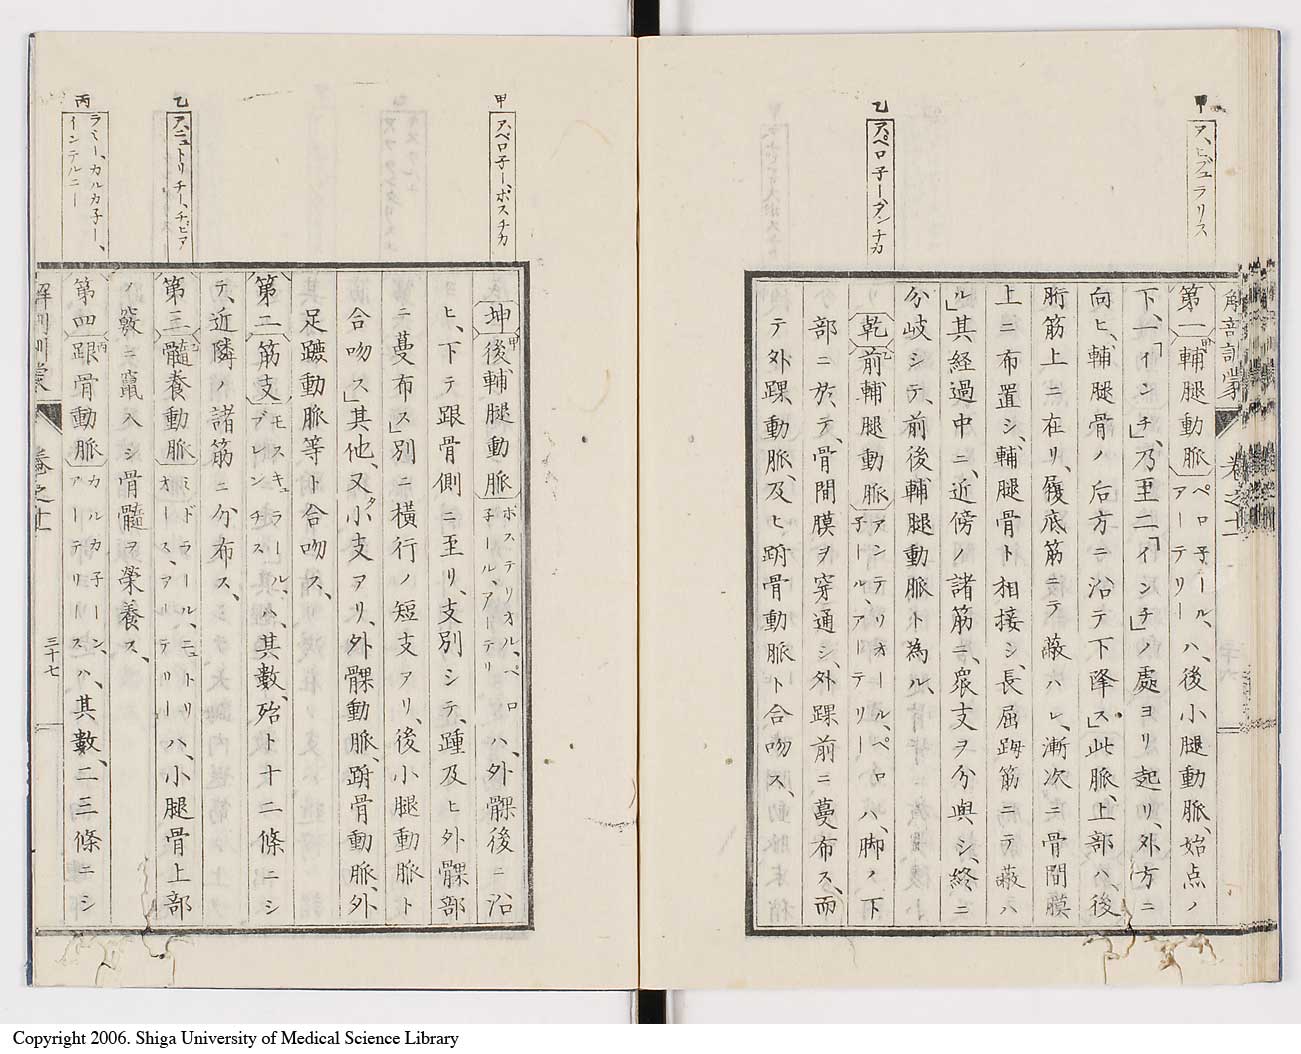 甲
ア、ヒブュラリス
乙
ア、ペロ子ー、アンチカ
解剖訓蒙
卷之十一
第一輔腿動脈ペロ子ール、アーテリーハ、後小腿動脈、始点ノ
下、一「インチ」乃至二「インチ」ノ處ヨリ起リ、外方ニ
向ヒ、輔腿骨ノ后方ニ沿テ下降ス此脈、上部ハ、後
胻筋上ニ在リ、履底筋ニテ蔽ハレ、漸次ニ骨間膜
上ニ布置シ、輔腿骨ト相接シ、長屈踇筋ニテ蔽ハ
ル」其経過中ニ、近傍ノ諸筋ニ、衆支ヲ分與シ、終ニ
分岐シテ、前後輔腿動脈ト為ル、
乾前輔腿動脈アンテリオール、ペロ子ール、アーテリーハ、脚ノ下
部ニ於テ、骨間膜ヲ穿通シ、外踝前ニ蔓布ス、而
テ外踝動脈、及ヒ、跗骨動脈ト合吻ス、
甲
ア、ペロ子ー、ポスチカ
乙
ア、ニュトリチー、チビア
丙
ラミー、カルカ子ー、
インテルニー
坤後輔腿動脈ポステリオル、ペロ子ール、アーテリーハ、外髁後ニ沿
ヒ、下テ跟骨側ニ至リ、支別シテ、踵及ヒ外髁部
ニ蔓布ス」別ニ橫行ノ短支アリ、後小腿動脈ト
合吻ス」其他、又タ小支ヲリ、外髁動脈、跗骨動脈、外
足蹠動脈等ト合吻ス、
第二筋支モスキュラール、ブレンチスハ、其數、殆ト十二條ニシ
テ、近隣ノ諸筋ニ分布ス、
第三髓養動脈ミドラール、ニュトリオース、アルテリーハ、小腿骨上部
ノ竅ニ竄入シ骨髓ヲ榮養ス、
第四跟骨動脈カルカ子ーン、アーテリースハ、其數、二三條ニシ
解剖訓蒙
卷之十一
三十七
Copyright 2006. Shiga University of Medical Science Library